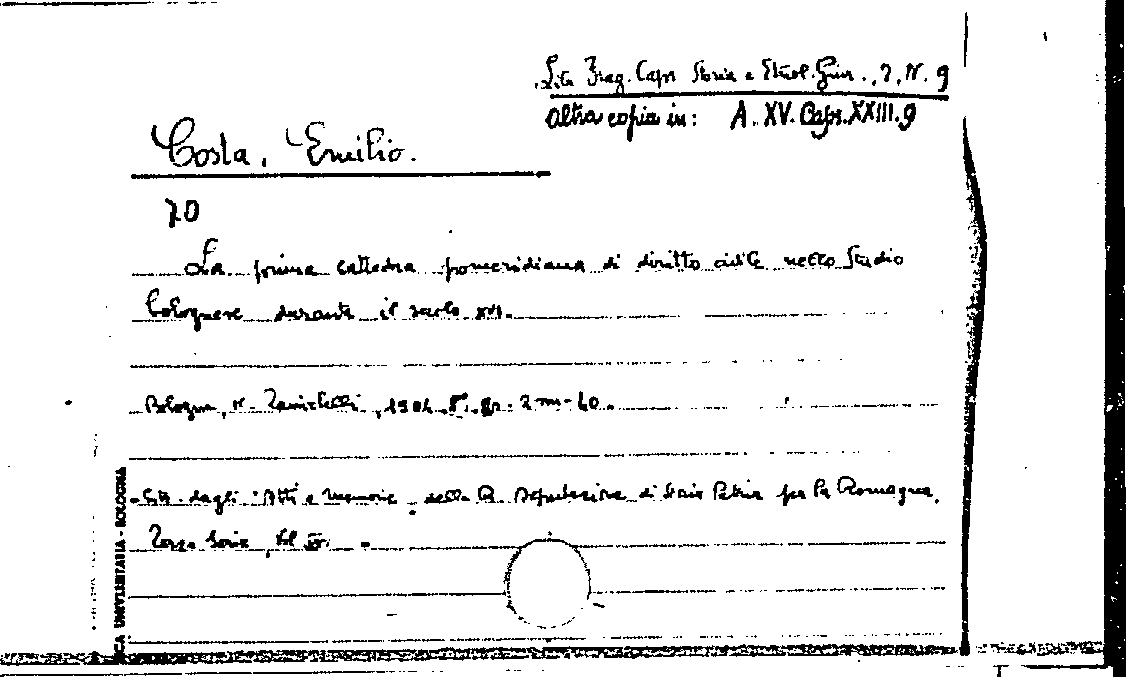 Frag. Caps. Storia e Giur., 7, N. 9
Altra copia in: A. XV. Caps. XXIII. 9
Costa, Emilio.
70
La prima cattedra pomeridiana di diritto civile nello Studio
bolognese durante il secolo XVI.
Bologna, N. Zanichelli, 1904. 8°. gr. 2 nn-40.
- Estr. dagli "Atti e Memorie della R. Deputazione di Storia Patria per la Romagna,
Terza Serie, Vol
CA UNIVERSITARIA - BOLOGNA